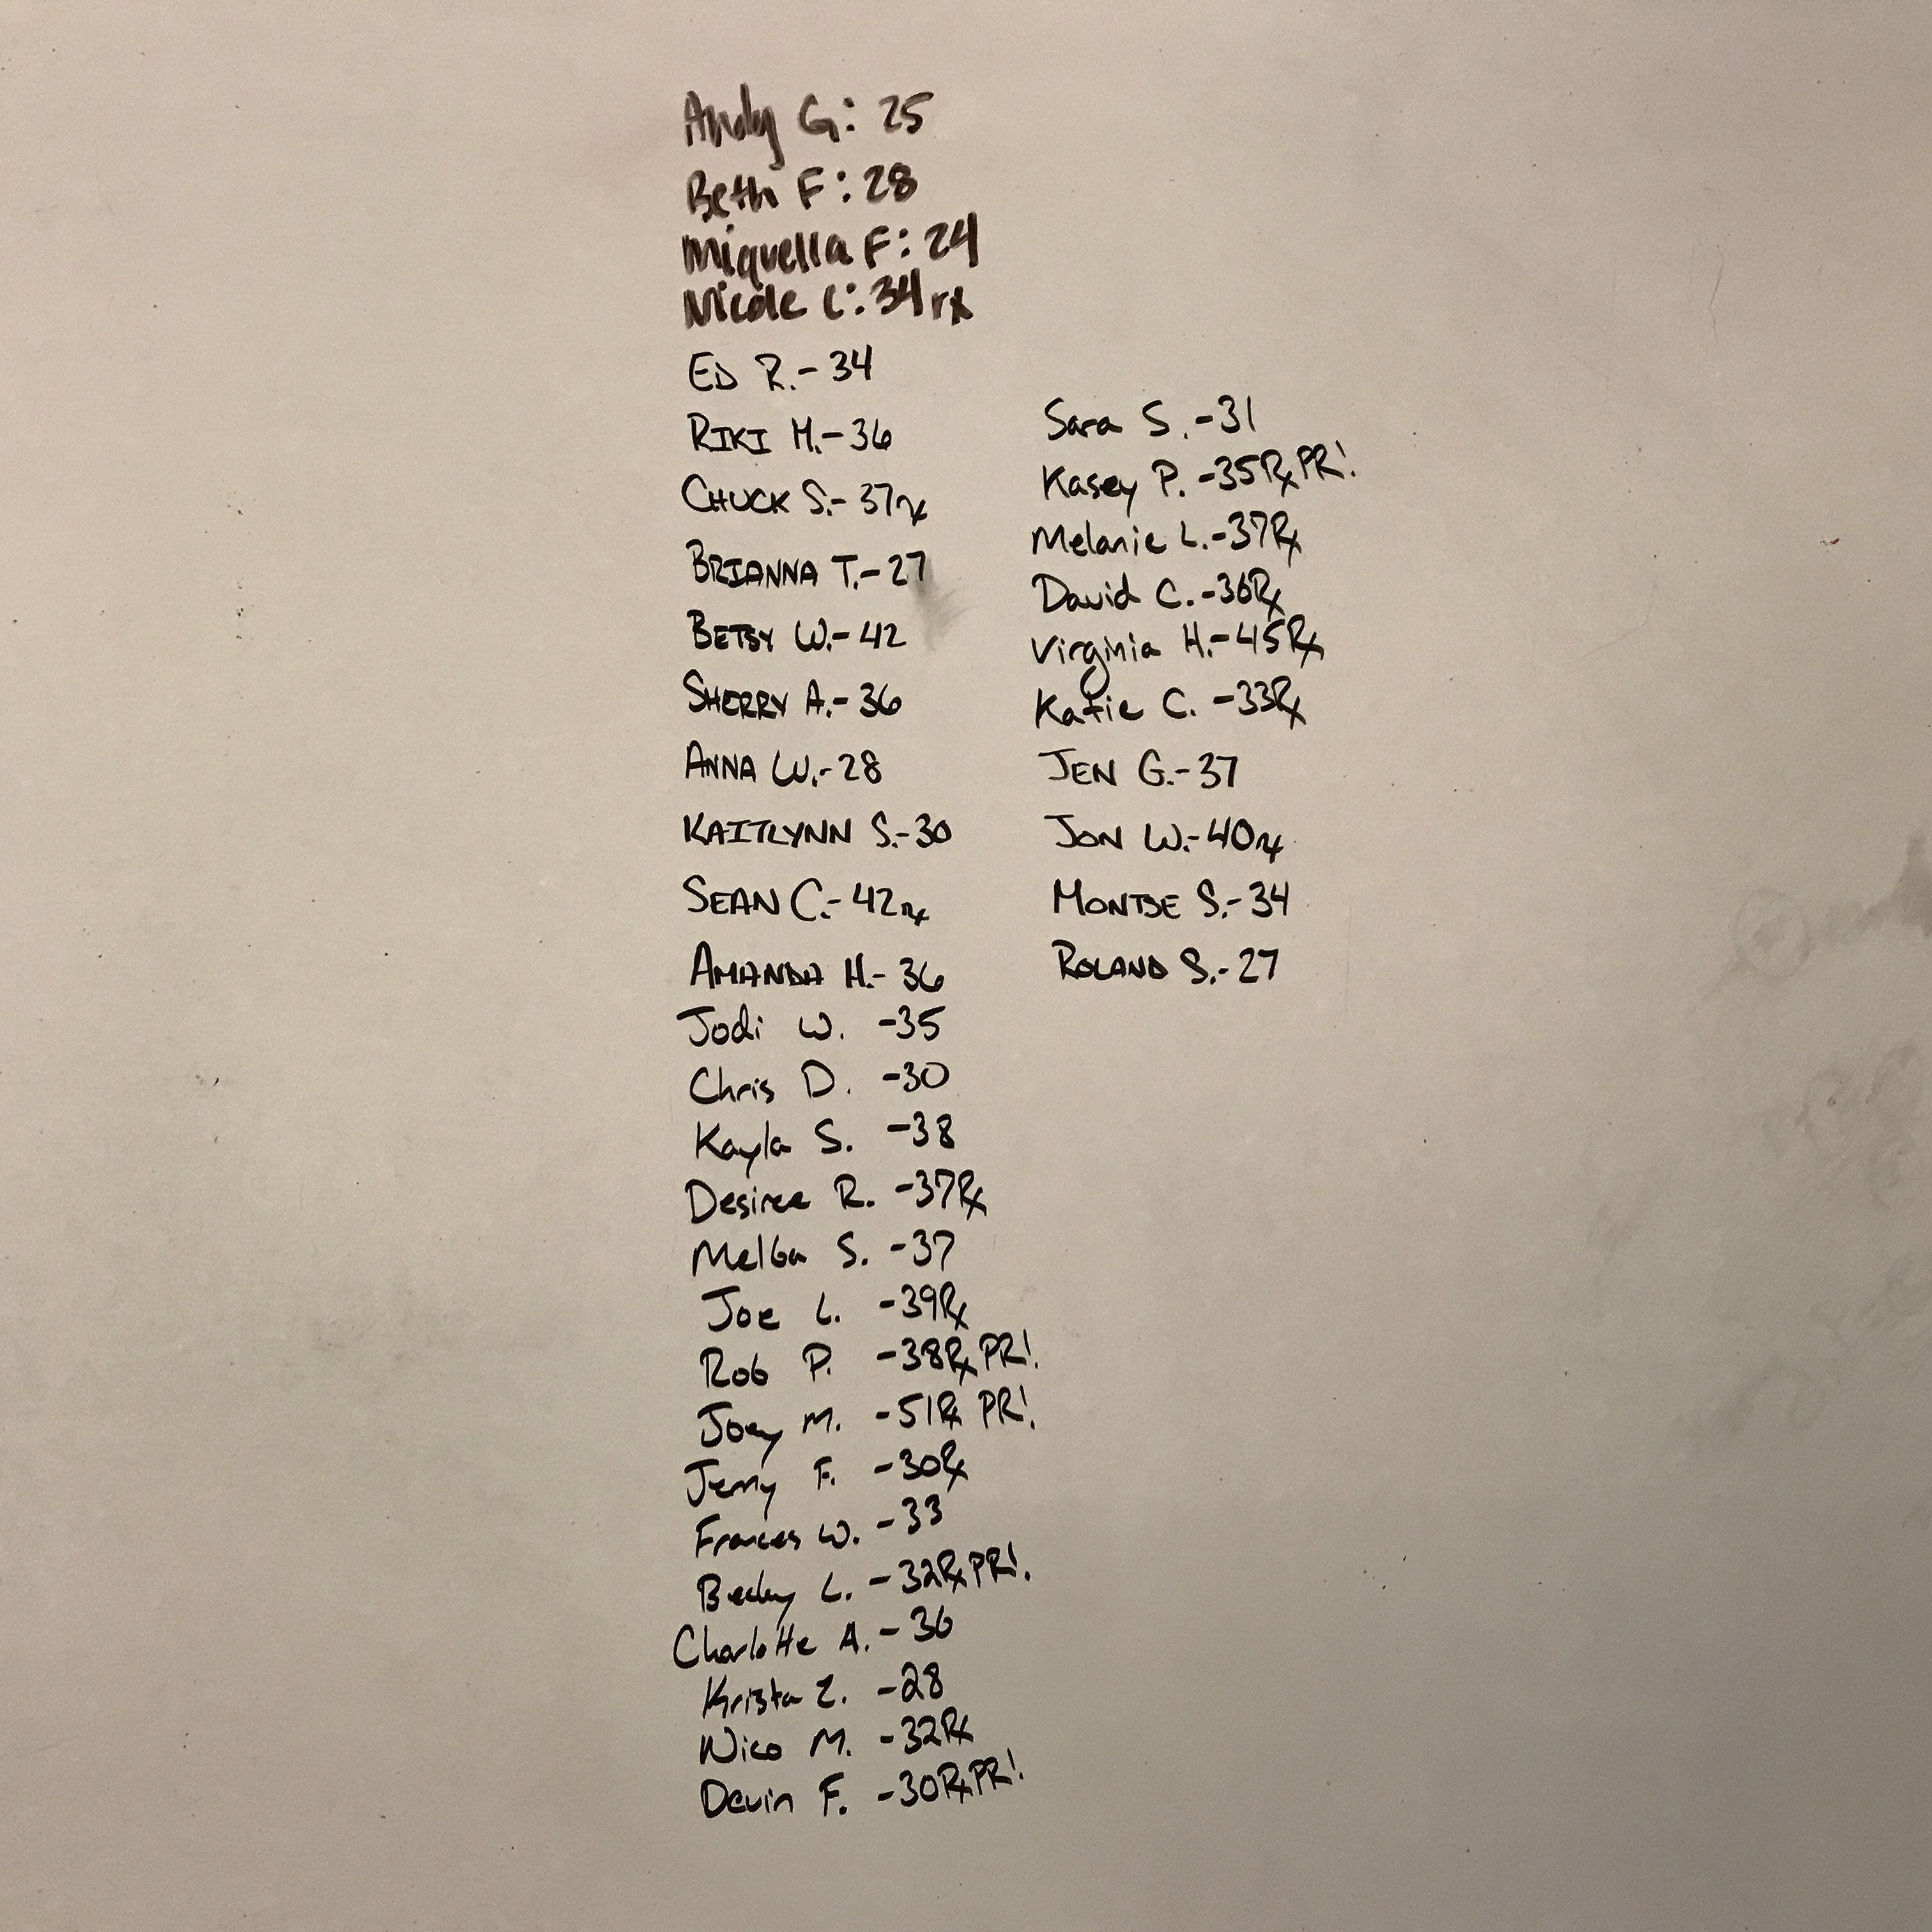 Andy G: 25
Beth F: 28
Miquella F: 24
Nicole C: 34 rx
ED R.- 34
RIKI M.- 36
CHUCK S.- 37rx
BRIANNA T.- 27
BETSY W.- 42
SHERRY A.- 36
ANNA W.- 28
KAITLYNN S.- 30
SEAN C.- 42rx
AMANDA H.- 36
Jodi W. -35
Chris D. -30
Kayla S. -38
Desiree R. -37Rx
Melba S. -37
Joe L. -39Rx
Rob P. -38Rx PR!
Joey M. -51Rx PR!
Jerry F. -30Rx
Frances W. -33
Becky L. -32Rx PR!
Charlotte A. -36
Krista Z. -28
Nico M. -32Rx
Devin F. -30Rx PR!
Sara S. -31
Kasey P. -35Rx PR!
Melanie L. -37Rx
David C. -36Rx
Virginia H. -45Rx
Katie C. -33Rx
JEN G.- 37
JON W.- 40rx
MONTSE S.- 34
ROLAND S.- 27